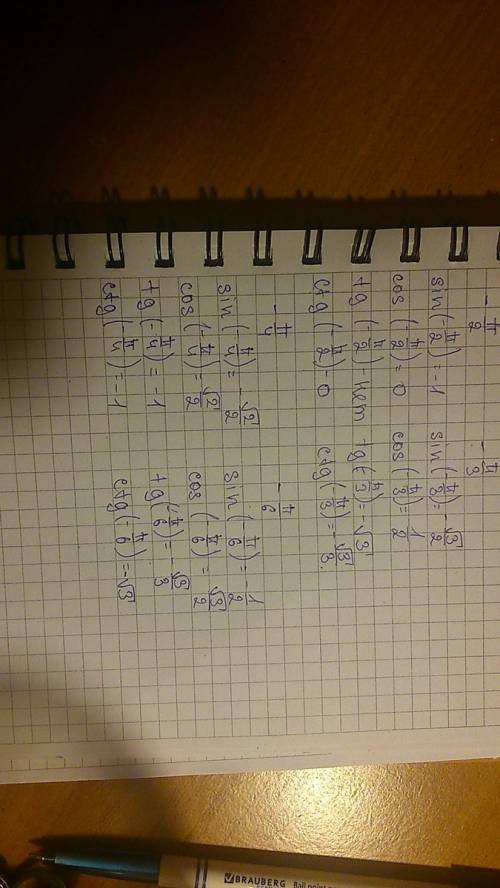 -π/2
sin(-π/2)=-1
cos(-π/2)=0
tg(-π/2)-нет
ctg(-π/2)=0
-π/3
sin(-π/3)=-√3/2
cos(-π/3)=1/2
tg(-π/3)=-√3
ctg(-π/3)=-√3/3.
-π/4
sin(-π/4)=-√2/2
cos(-π/4)=-√2/2
tg(-π/4)=-1
ctg(-π/4)=-1
-π/6
sin(-π/6)=-1/2
cos(-π/6)=√3/2
tg(-π/6)=-√3/3
ctg(-π/6)=-√3
BRAUBERG
Ball point